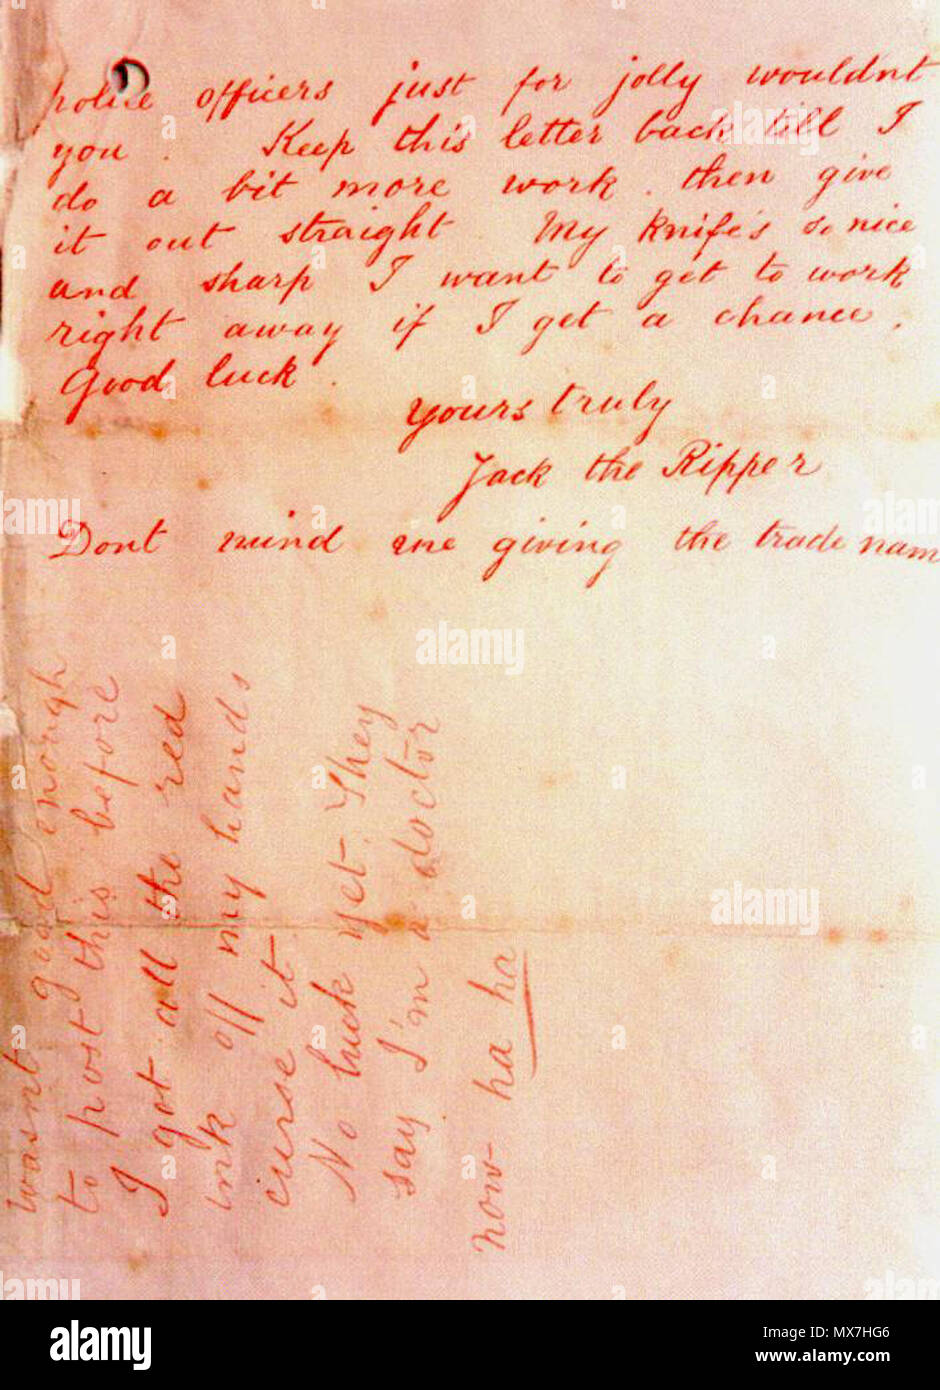 police officers just for jolly wouldnt
you. Keep this letter back till I
do a bit more work. then give
it out straight. My knife's so nice
and sharp I want to get to work
right away if I get a chance.
Good luck.
Yours truly
Jack the Ripper
Dont mind me giving the trade nam
wasnt good enough
to post this before
I got all the red
ink off my hands
curse it
No luck yet. They
say I'm a doctor
now ha ha
alamy
alamy
Image ID: MX7HG6
www.alamy.com